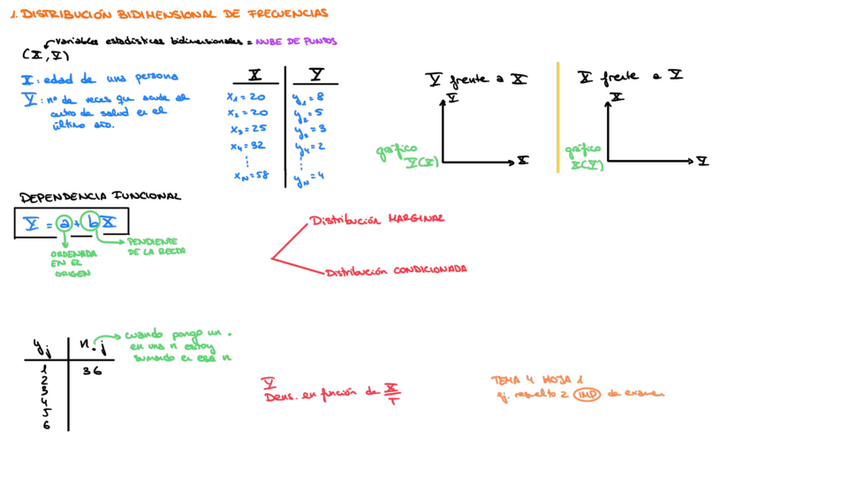 1. DISTRIBUCIÓN BIDIMENSIONAL DE FRECUENCIAS
variables estadísticas bidimensionales = NUBE DE PUNTOS
(X, Y)
X: edad de una persona
Y: nº de veces que acude al
centro de salud en el
último año.
X Y
x1 = 20 y1 = 8
x2 = 20 y2 = 5
x3 = 25 y3 = 3
x4 = 32 y4 = 2
⋮ ⋮
xN = 58 yN = 4
Y frente a X
Y
gráfico
Y(X)
X
X frente a Y
X
gráfico
X(Y)
Y
DEPENDENCIA FUNCIONAL
Y = a + b X
ORDENADA
EN EL
ORIGEN
PENDIENTE
DE LA RECTA
Distribución MARGINAL
Distribución CONDICIONADA
yj n.j
1 36
2
3
4
5
6
cuando pongo un .
en una n estoy
sumando en esa n
Y
Dens. en función de X/T
TEMA 4 HOJA 1
ej. resuelto 2 IMP de examen